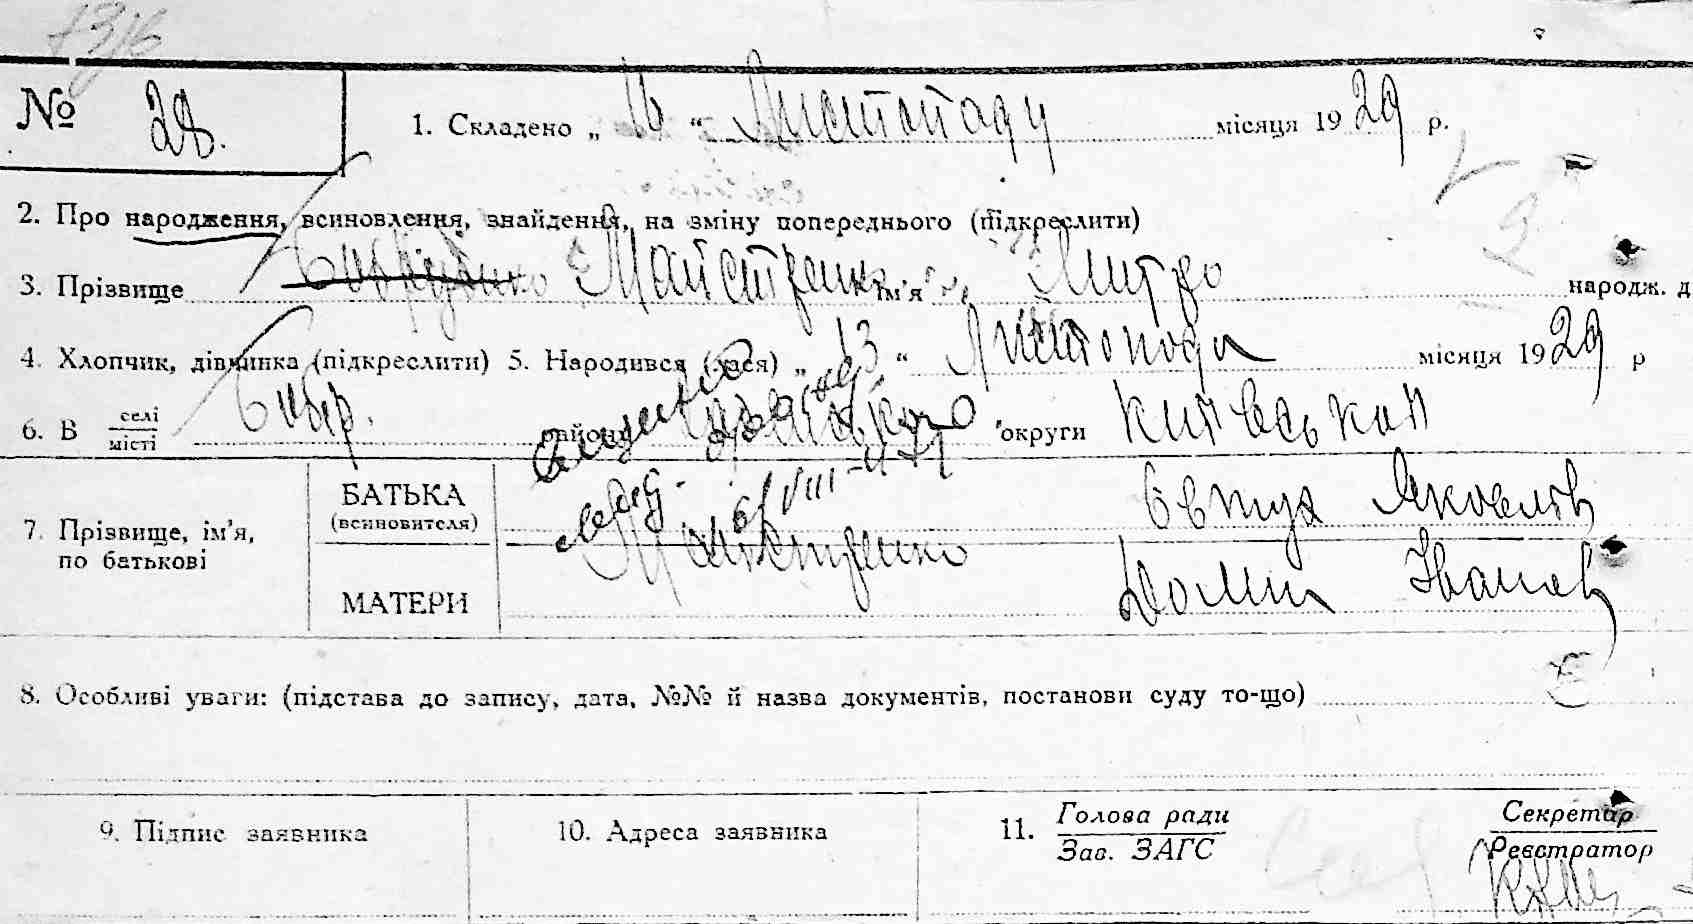 № 28. 1. Складено „ 16 “ Листопаду місяця 1929 р.
2. Про народження, всиновлення, знайдення, на зміну попереднього (підкреслити)
3. Прізвище Майстренко ім'я Митро народж. д
4. Хлопчик, дівчинка (підкреслити) 5. Народився (лася) „ 13 “ Листопода місяця 1929 р
6. В селі
місті
району округи Київськой
7. Прізвище, ім'я,
по батькові
БАТЬКА
(всиновителя)
Майстренко Євтух Яковлев
МАТЕРИ
Домн Іванов
8. Особливі уваги: (підстава до запису, дата, №№ й назва документів, постанови суду то-що)
9. Підпис заявника 10. Адреса заявника 11. Голова ради
Зав. ЗАГС
Секретар
Реєстратор